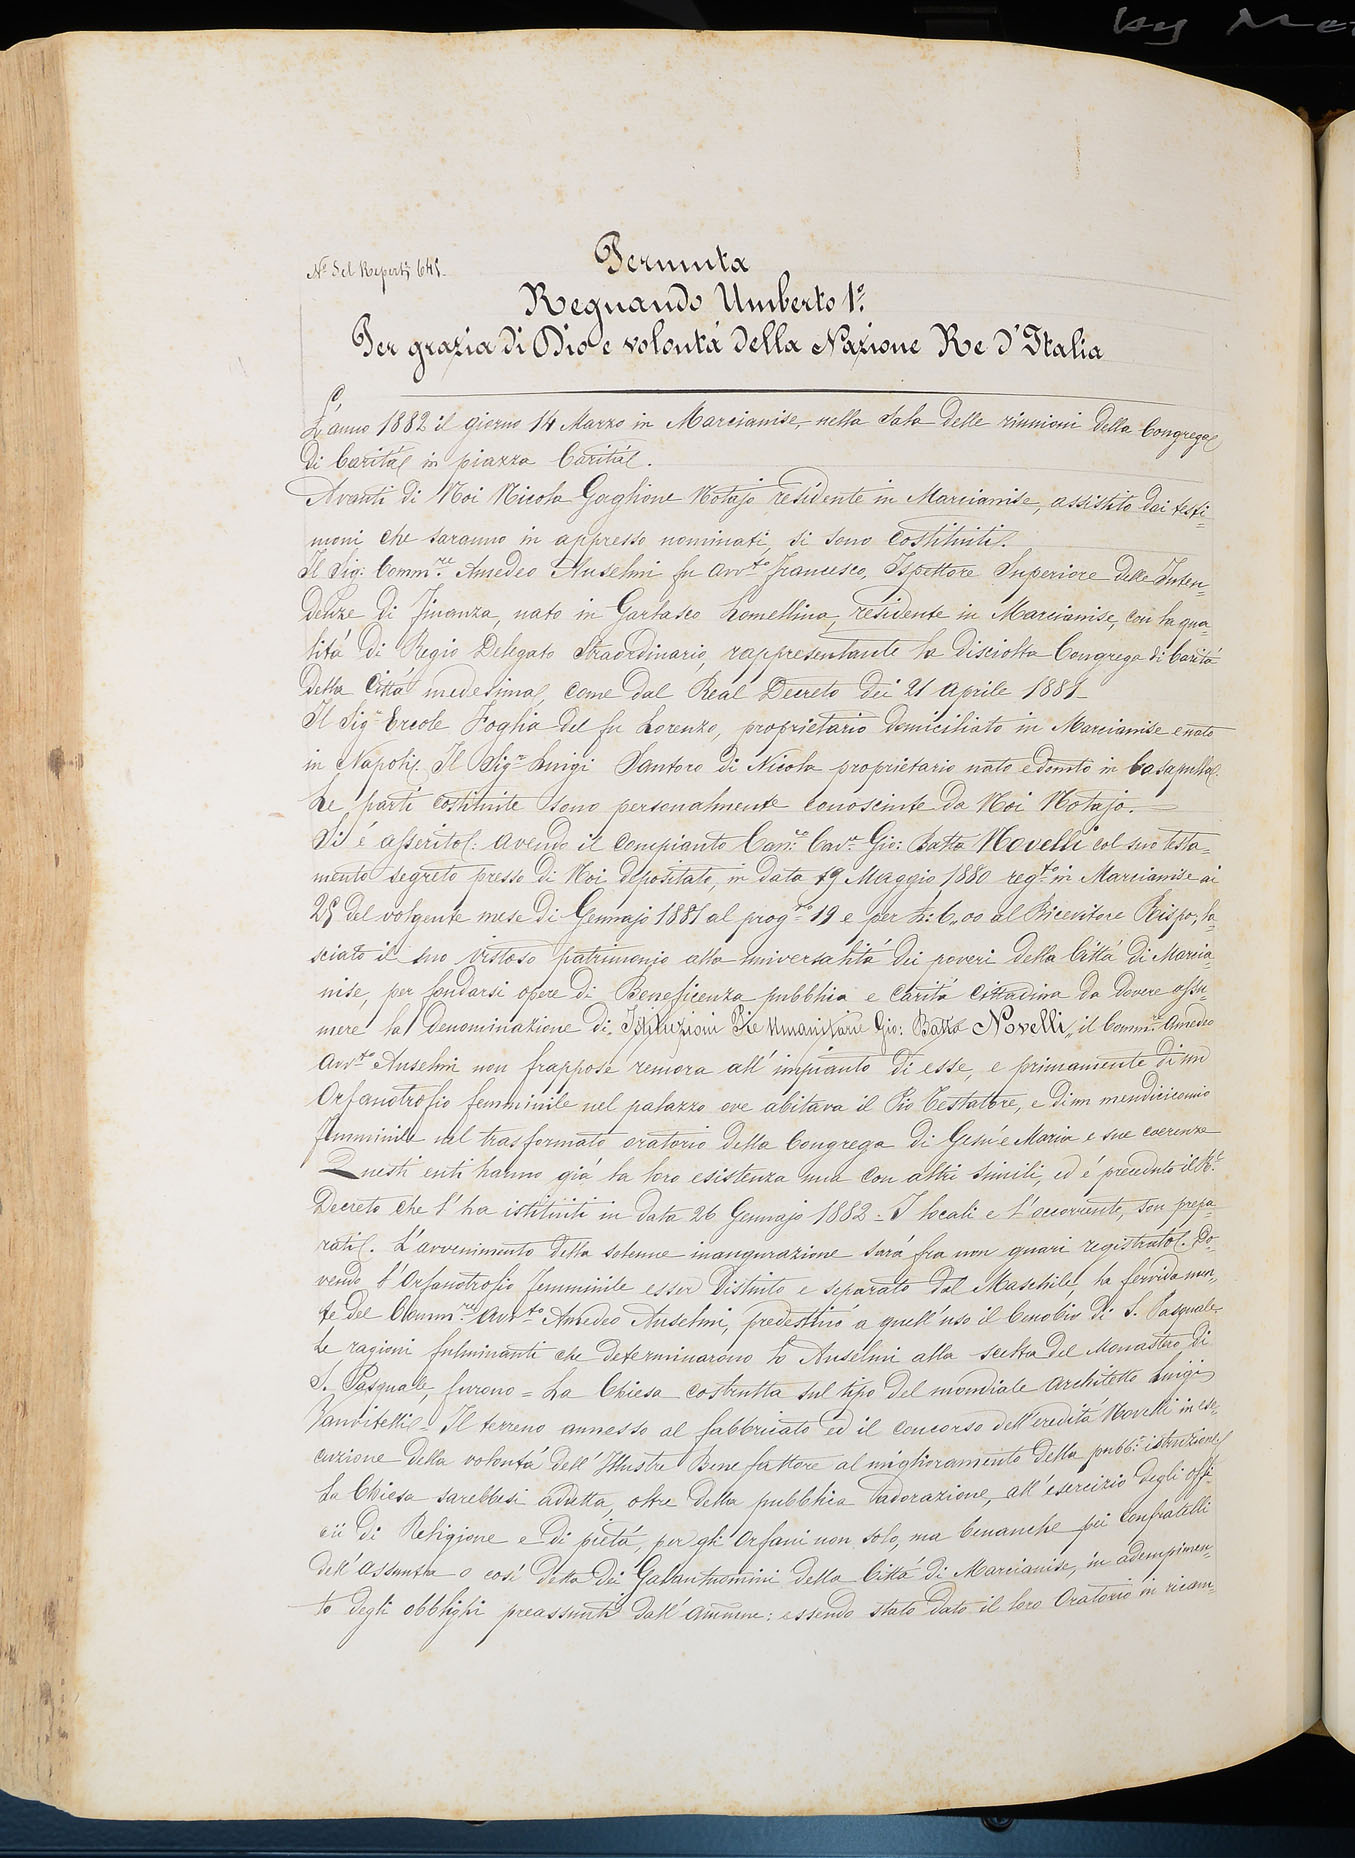 by Me
Nº del Repert. 641.
Permuta
Regnando Umberto 1º.
Per grazia di Dio e volontà della Nazione Re d'Italia
L'anno 1882 il giorno 14 Marzo in Marcianise, nella sala delle riunioni della Congrega
di Carità in piazza Carità.
Avanti di Noi Nicola Gaglione Notajo residente in Marcianise, assistito dai testi=
moni che saranno in appresso nominati, si sono costituiti.
Il Sig: Comm.re Amedeo Anselmi fu avv.to Francesco, Ispettore Superiore delle Inten=
denze di Finanza, nato in Garlasco Lomellina, residente in Marcianise, con la qua=
lità di Regio Delegato Straordinario, rappresentante la disciolta Congrega di Carità
della Città medesima, come dal Real Decreto dei 21 Aprile 1881
Il Sig.r Ercole Foglia del fu Lorenzo, proprietario domiciliato in Marcianise e nato
in Napoli. Il Sig.r Luigi Santoro di Nicola proprietario nato e domto in Casapulla.
Le parti costituite sono personalmente conosciute da Noi Notajo.
Si è asserito: avendo il compianto Can.co Cav.re Gio: Batta Novelli col suo testa=
mento segreto presso di Noi depositato, in data 19 Maggio 1880 reg.to in Marcianise ai
29 del volgente mese di Gennajo 1881 al prog.vo 19 e per L: 6,00 al Ricevitore Rispo, la=
sciato il suo vistoso patrimonio alla universalità dei poveri della Città di Marcia=
nise, per fondarsi opere di Beneficenza pubblica e carità cittadina da dovere assu=
mere la Denominazione di "Istituzioni Pie Umanitarie Gio: Batta Novelli" il Comm.re Amedeo
Avv.to Anselmi non frappose remora all'impianto di esse, e primamente di un
Orfanotrofio femminile nel palazzo ove abitava il Pio Testattore, e di un mendicicomio
femminile nel trasformato oratorio della Congrega di Gesù e Maria e sue coerenze
Questi enti hanno già la loro esistenza una con altri simili, ed è preceduto il R.l
Decreto che l'ha istituiti in data 26 Gennajo 1882. I locali e l'occorrente, son prepa=
rati. L'avvenimento della solenne inaugurazione sarà fra non guari registrato. Do=
vendo l'Orfanotrofio Femminile esser distinto e separato dal Maschile, la fervida men=
te del Comm.re Avv.to Amedeo Anselmi, predestinò a quell'uso il Cenobio di S. Pasquale
Le ragioni fulminanti che determinarono lo Anselmi alla scelta del Monastero di
S. Pasquale, furono = La Chiesa costrutta sul tipo del mondiale architetto Luigi
Vanvitelli = Il terreno annesso al fabbricato ed il concorso dell'eredità Novelli in ese=
cuzione della volontà dell'Illustre Benefattore al miglioramento della pubb.ca istruzione
La Chiesa sarebbesi adatta, oltre della pubblica adorazione, all'esercizio degli offi=
cii di Religione e di pietà, per gli Orfani non solo, ma benanche pei confratelli
dell'Assunta o così detta dei Galantuomini della Città di Marcianise, in adempimen=
to degli obblighi preassunti dall'Amm.ne: essendo stato dato il loro Oratorio in ricam=